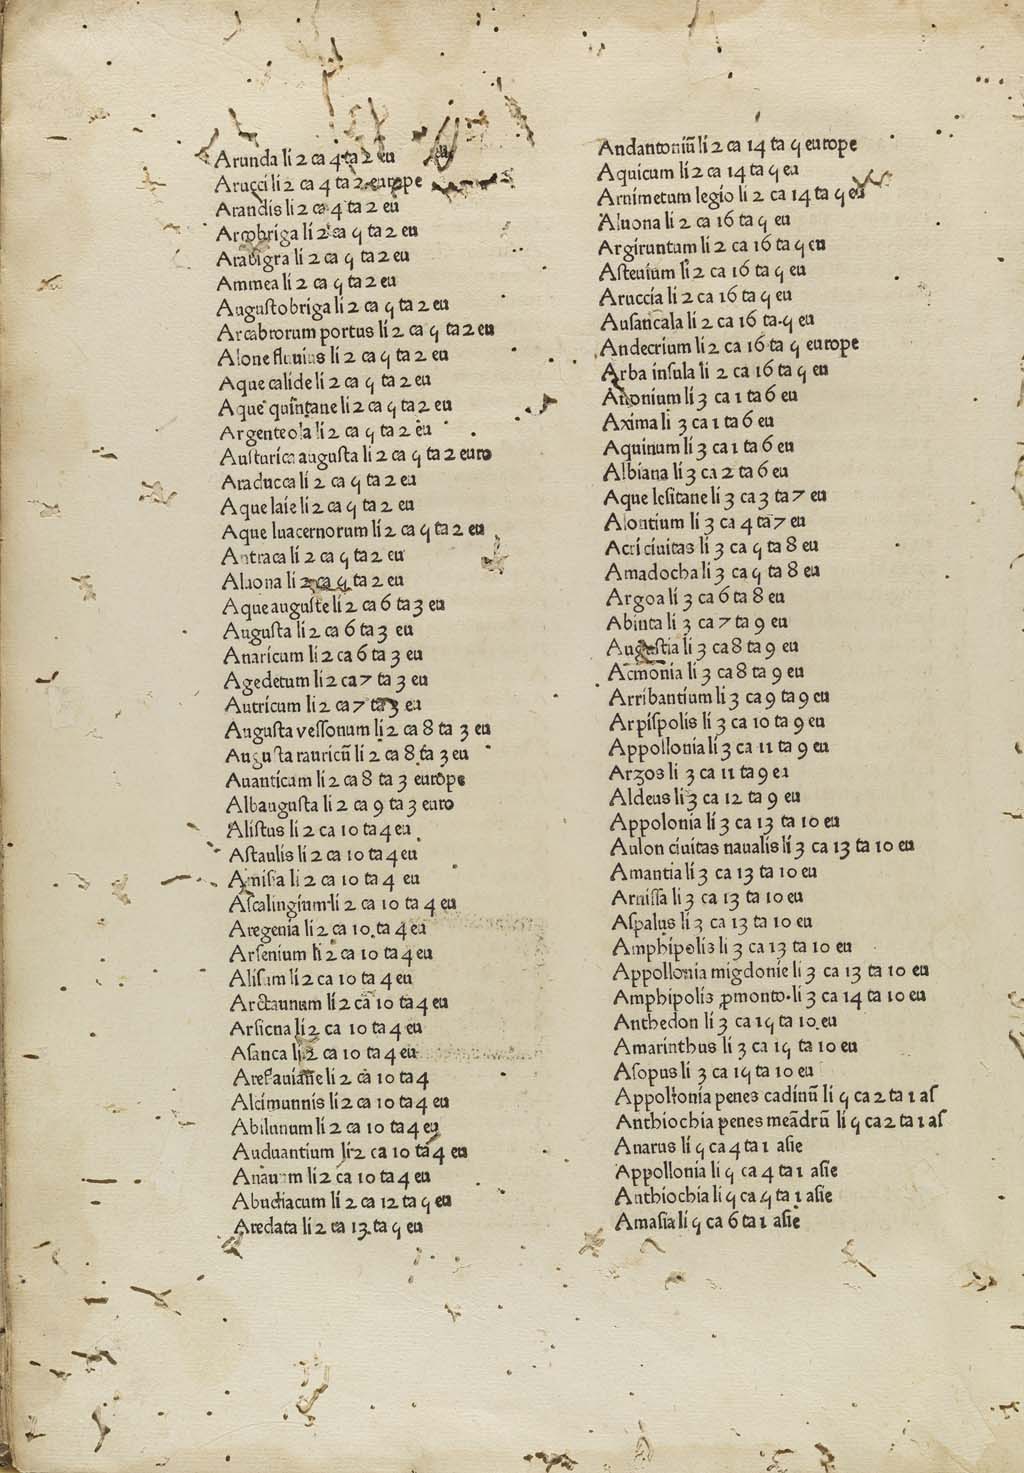 Arunda li 2 ca 4 ta 2 eu
Arucci li 2 ca 4 ta 2 europe
Arandis li 2 ca 4 ta 2 eu
Arcobriga li 2 ca 5 ta 2 eu
Aravigra li 2 ca 5 ta 2 eu
Ammea li 2 ca 5 ta 2 eu
Augustobriga li 2 ca 5 ta 2 eu
Arcabrorum portus li 2 ca 5 ta 2 eu
Alone fluvius li 2 ca 5 ta 2 eu
Aque calide li 2 ca 5 ta 2 eu
Aque quintane li 2 ca 5 ta 2 eu
Argenteola li 2 ca 5 ta 2 eu
Austurica augusta li 2 ca 5 ta 2 euro
Araducca li 2 ca 5 ta 2 eu
Aque laie li 2 ca 5 ta 2 eu
Aque luacernorum li 2 ca 5 ta 2 eu
Antraca li 2 ca 5 ta 2 eu
Aluona li 2 ca 5 ta 2 eu
Aque auguste li 2 ca 6 ta 3 eu
Augusta li 2 ca 6 ta 3 eu
Anaricum li 2 ca 6 ta 3 eu
Agedetum li 2 ca 7 ta 3 eu
Autricum li 2 ca 7 ta 3 eu
Augusta vessonum li 2 ca 8 ta 3 eu
Augusta rauricū li 2 ca 8 ta 3 eu
Auanticum li 2 ca 8 ta 3 europe
Albaugusta li 2 ca 9 ta 3 euro
Alistus li 2 ca 10 ta 4 eu
Astaulis li 2 ca 10 ta 4 eu
Amisia li 2 ca 10 ta 4 eu
Ascalingium li 2 ca 10 ta 4 eu
Aregenia li 2 ca 10 ta 4 eu
Arsenium li 2 ca 10 ta 4 eu
Alisum li 2 ca 10 ta 4 eu
Arctaunum li 2 ca 10 ta 4 eu
Arsicna li 2 ca 10 ta 4 eu
Asanca li 2 ca 10 ta 4 eu
li 2 ca 10 ta 4
Alcimunnis li 2 ca 10 ta 4 eu
Abilunum li 2 ca 10 ta 4 eu
Auduantium li 2 ca 10 ta 4 eu
Anauum li 2 ca 10 ta 4 eu
Abudiacum li 2 ca 12 ta 5 eu
Aredata li 2 ca 13 ta 5 eu
Andantoniū li 2 ca 14 ta 5 europe
Aquicum li 2 ca 14 ta 5 eu
Arnimetum legio li 2 ca 14 ta 5 eu
Aluona li 2 ca 16 ta 5 eu
Argiruntum li 2 ca 16 ta 5 eu
Asteuium li 2 ca 16 ta 5 eu
Aruccia li 2 ca 16 ta 5 eu
Ausancala li 2 ca 16 ta 5 eu
Andecrium li 2 ca 16 ta 5 europe
Arba insula li 2 ca 16 ta 5 eu
Anonium li 3 ca 1 ta 6 eu
Axima li 3 ca 1 ta 6 eu
Aquinum li 3 ca 1 ta 6 eu
Albiana li 3 ca 2 ta 6 eu
Aque lesitane li 3 ca 3 ta 7 eu
Alontium li 3 ca 4 ta 7 eu
Acri ciuitas li 3 ca 5 ta 8 eu
Amadocha li 3 ca 5 ta 8 eu
Argoa li 3 ca 6 ta 8 eu
Abinta li 3 ca 7 ta 9 eu
Augustia li 3 ca 8 ta 9 eu
Acmonia li 3 ca 8 ta 9 eu
Arribantium li 3 ca 9 ta 9 eu
Arpispolis li 3 ca 10 ta 9 eu
Appollonia li 3 ca 11 ta 9 eu
Arzos li 3 ca 11 ta 9 eu
Aldeus li 3 ca 12 ta 9 eu
Appolonia li 3 ca 13 ta 10 eu
Aulon ciuitas naualis li 3 ca 13 ta 10 eu
Amantia li 3 ca 13 ta 10 eu
Arnissa li 3 ca 13 ta 10 eu
Aspalus li 3 ca 13 ta 10 eu
Amphipolis li 3 ca 13 ta 10 eu
Appollonia migdonie li 3 ca 13 ta 10 eu
Amphipolis ꝓmonto. li 3 ca 14 ta 10 eu
Anthedon li 3 ca 15 ta 10 eu
Amarinthus li 3 ca 15 ta 10 eu
Asopus li 3 ca 15 ta 10 eu
Appollonia penes cadinū li 5 ca 2 ta 1 as
Anthiochia penes meādrū li 5 ca 2 ta 1 as
Anarus li 5 ca 4 ta 1 asie
Appollonia li 5 ca 4 ta 1 asie
Anthiochia li 5 ca 5 ta 1 asie
Amasia li 5 ca 6 ta 1 asie